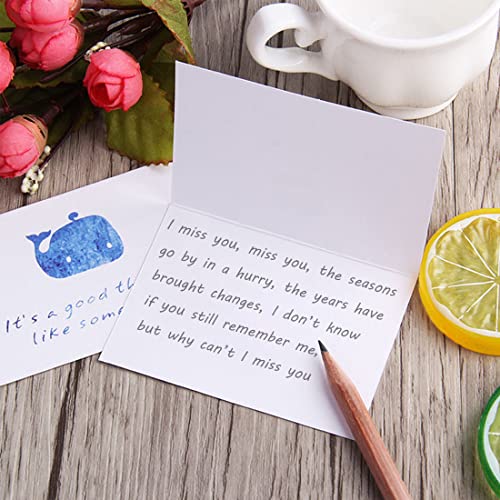 It's a good th
like some
I miss you, miss you, the seasons
go by in a hurry, the years have
brought changes, I don't know
if you still remember me,
but why can't I miss you